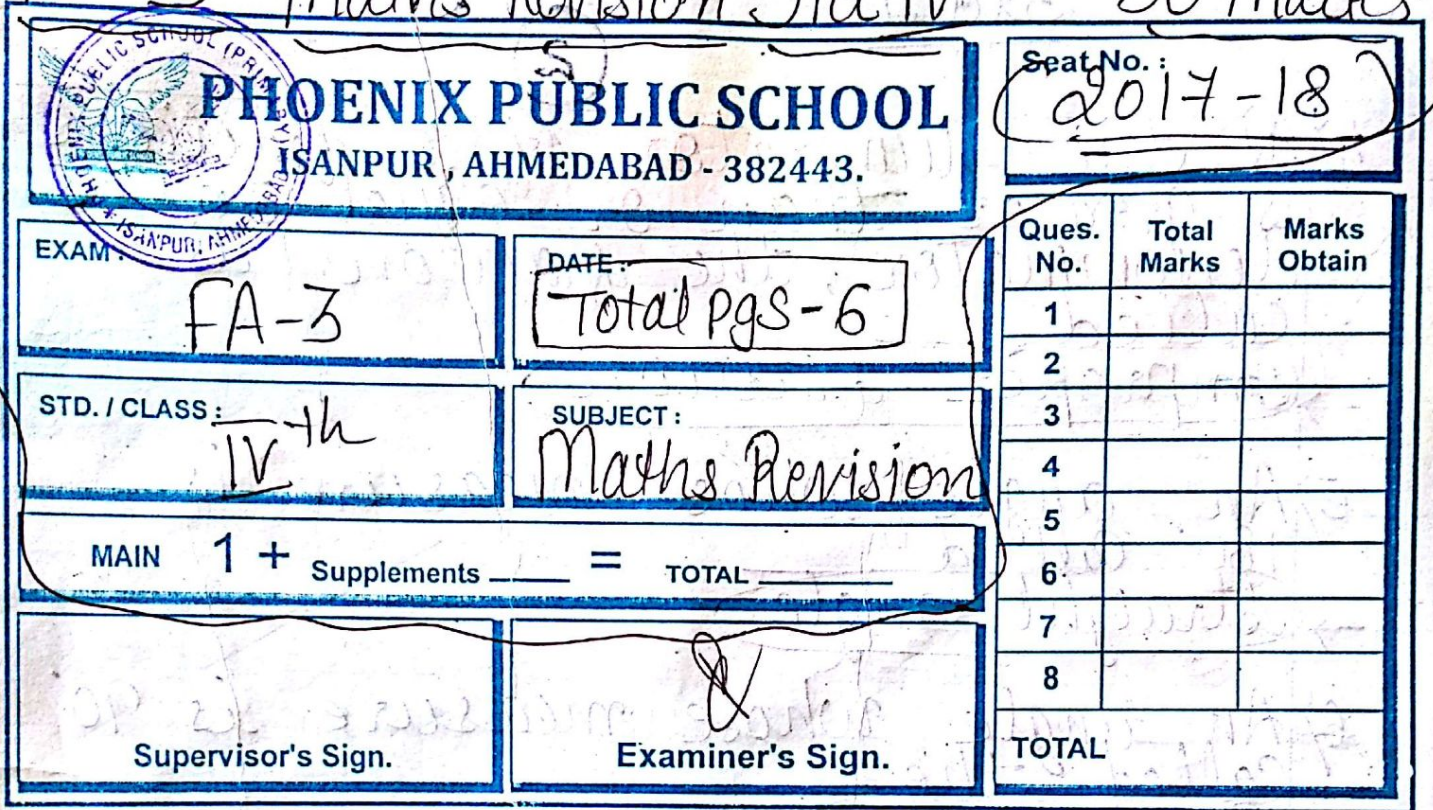 Maths Revision Std IV 30 Marks
PHOENIX PUBLIC SCHOOL
ISANPUR , AHMEDABAD - 382443.
PHOENIX PUBLIC SCHOOL (PRIMARY)
* ISANPUR, AHMEDABAD *
Seat No. :
2017-18
EXAM :
FA-3
DATE :-
Total pgs-6
STD. / CLASS :
IVth
SUBJECT :
Maths Revision
MAIN 1 + Supplements ____ = TOTAL ____
Supervisor's Sign.
Examiner's Sign.
Ques. No. Total Marks Marks Obtain
1
2
3
4
5
6
7
8
TOTAL